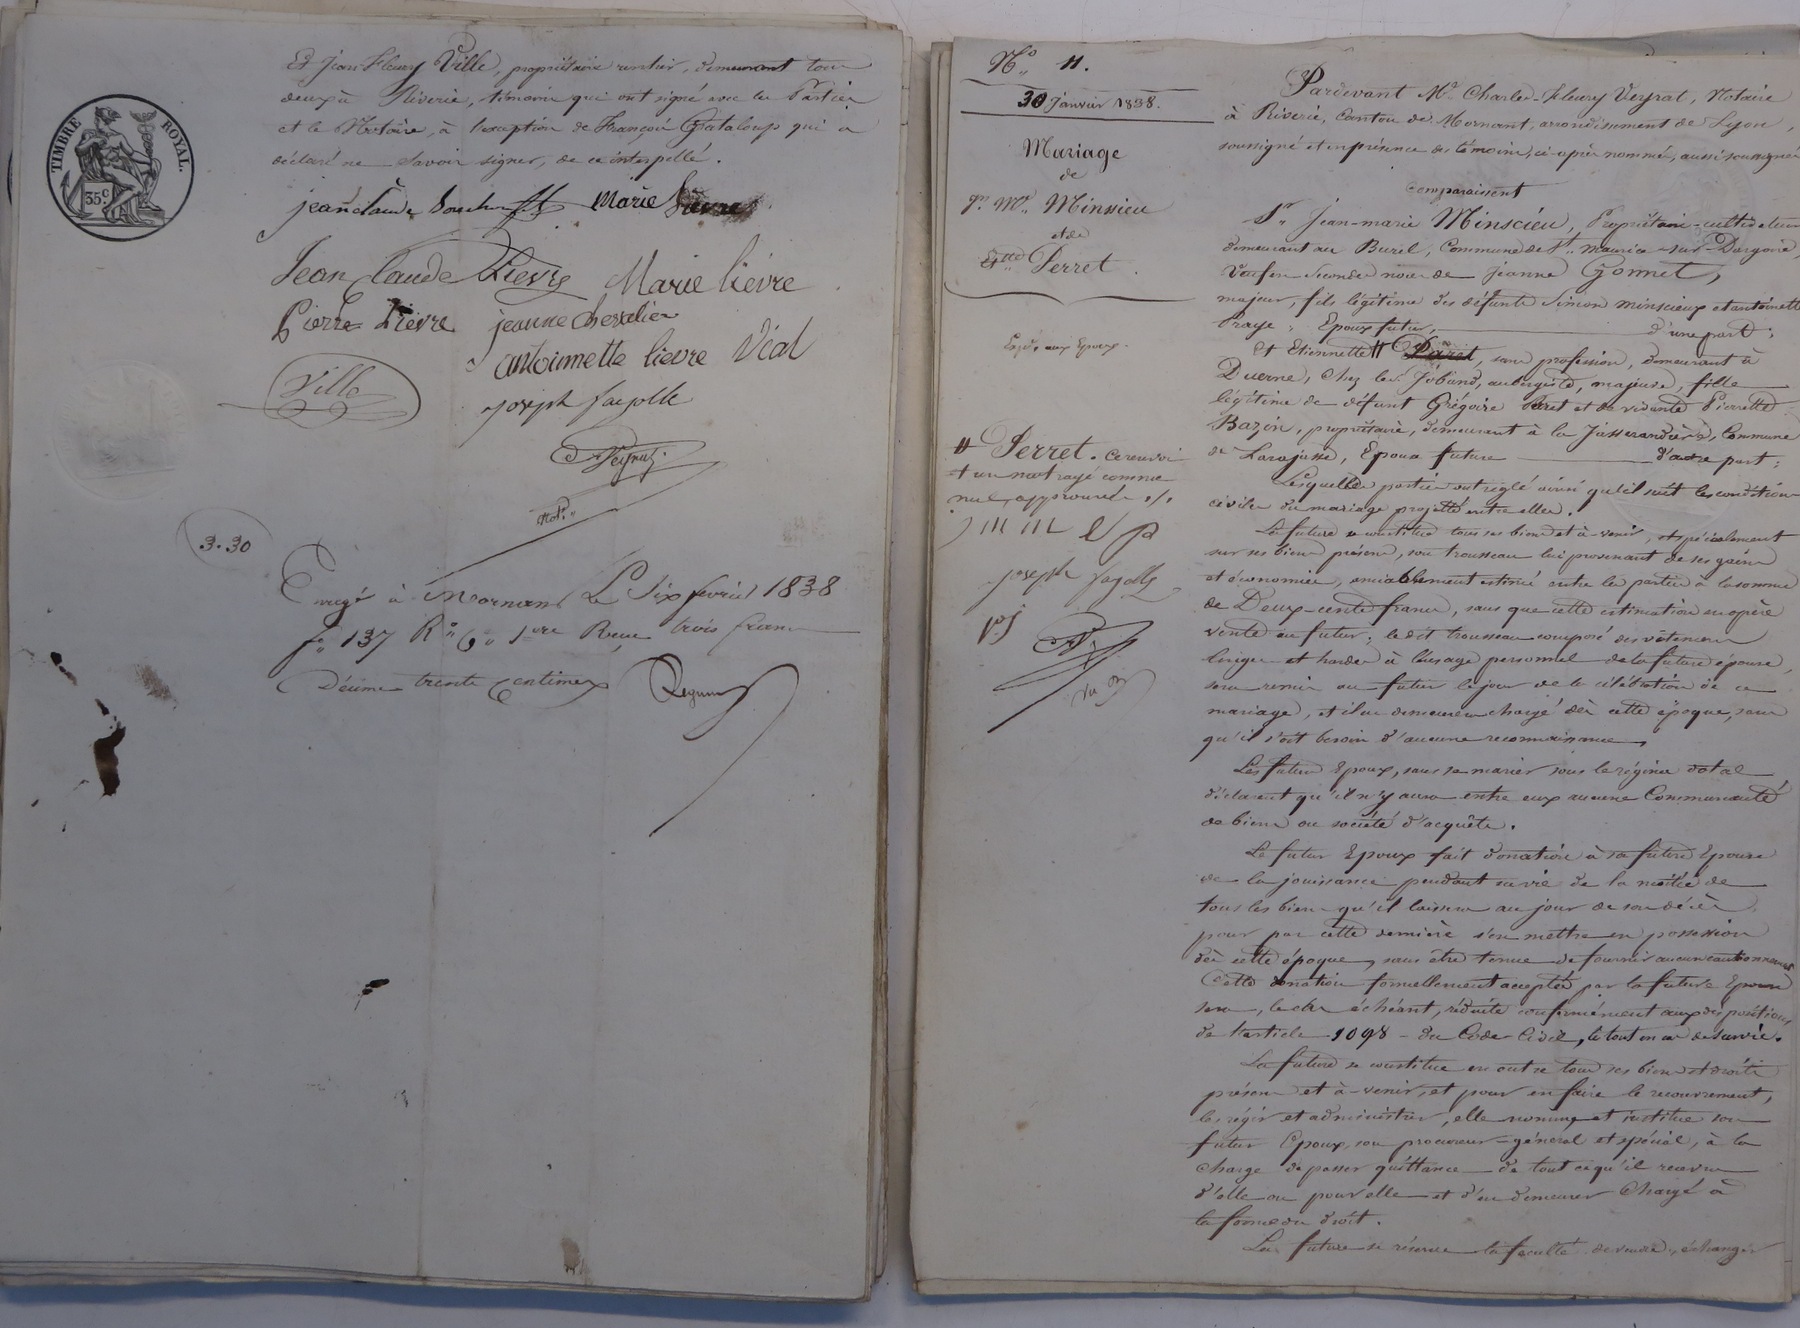 TIMBRE ROYAL.
35c
Et Jean Fleury Ville, propriétaire rentier, demeurant tous
deux à Riverie, témoins qui ont signé avec les Parties
et le Notaire, à l'exception de François Gataloup qui a
déclaré ne savoir signer, de ce interpellé.
jean claude Marie Lievre
Jean Claude Lievre Marie lièvre
Pierre Lievre jeanne chevalier
antoinnette lievre Vial
Ville
joseph fayolle
Veyrat
Not.
3.30
Enregé à Mornant Le Six février 1838
fo 137 Ro Co 1ere Reçu trois francs
Décime trente Centimes
No 11.
30 Janvier 1838.
Mariage
de
Jn. Mie. Minssieu
et de
Ettte Perret.
aux Epoux.
Perret. ce renvoi
et un mot rayé comme
nul, approuvés ./.
J M M E P
joseph fayolle
Pardevant Me. Charles-Fleury Veyrat, Notaire
à Riverie, Canton de Mornant, arrondissement de Lyon,
soussigné et en présence des témoins ci-après nommés, aussi soussignés
comparaissent
Sr. Jean-marie Minscieu, Propriétaire-cultivateur
demeurant au Buret, Commune de St. maurice-sur-Dargoire,
Veuf en secondes noces de jeanne Gonnet,
majeur, fils légitime des défunts Simon minscieux et antoinette
Praye, Epoux futur, d'une part;
Et Etiennette Pèret, sans profession, demeurant à
Duerne, chez le Sr. Joband, aubergiste, majeure, fille
légitime de défunt Grégoire Peret et de vivante Pierrette
Bazin, propriétaire, demeurant à la Jasserandière, Commune
de Larajasse, Epouse future d'autre part;
Lesquelles parties ont réglé ainsi qu'il suit les conditions
civiles du mariage projetté entre elles.
La future se constitue tous ses biens et à-venir, et spécialement
sur ses biens présens, son trousseau lui provenant de ses gains
et économies, amiablement estimé entre les parties à la somme
de Deux-cents francs, sans que cette estimation en opère
vente au futur; ledit trousseau composé des vêtemens
linges et hardes à l'usage personnel de la future épouse,
sera remis au futur le jour de la célébration de ce
mariage, et il en demeurera chargé dès cette époque, sans
qu'il soit besoin d'aucune reconnaissance.
Les futurs Epoux, sans se marier sous le régime dotal
déclarent qu'il n'y aura entre eux aucune Communauté
de biens ou société d'acquêts.
Le futur Epoux fait donation à sa future Epouse
de la jouissance pendant sa vie de la moitié de
tous les biens qu'il laissera au jour de son décès,
pour par cette dernière s'en mettre en possession
dès cette époque, sans être tenue de fournir aucun cautionnement
Cette donation formellement acceptée par la future Epouse
sera, le cas échéant, réduite conformément aux dispositions
de l'article 1098 - du Code Civil, le tout en cas de survie.
La future se constitue en outre tous ses biens et droits
présens et à-venir, et pour en faire le recouvrement,
les régir et administrer, elle nomme et institue son
futur Epoux, son procureur-général et spécial, à la
charge de passer quittance de tout ce qu'il recevra
d'elle ou pour elle et d'en demeurer Chargé à
la forme du droit.
La future se réserve la faculté de vendre, échanger